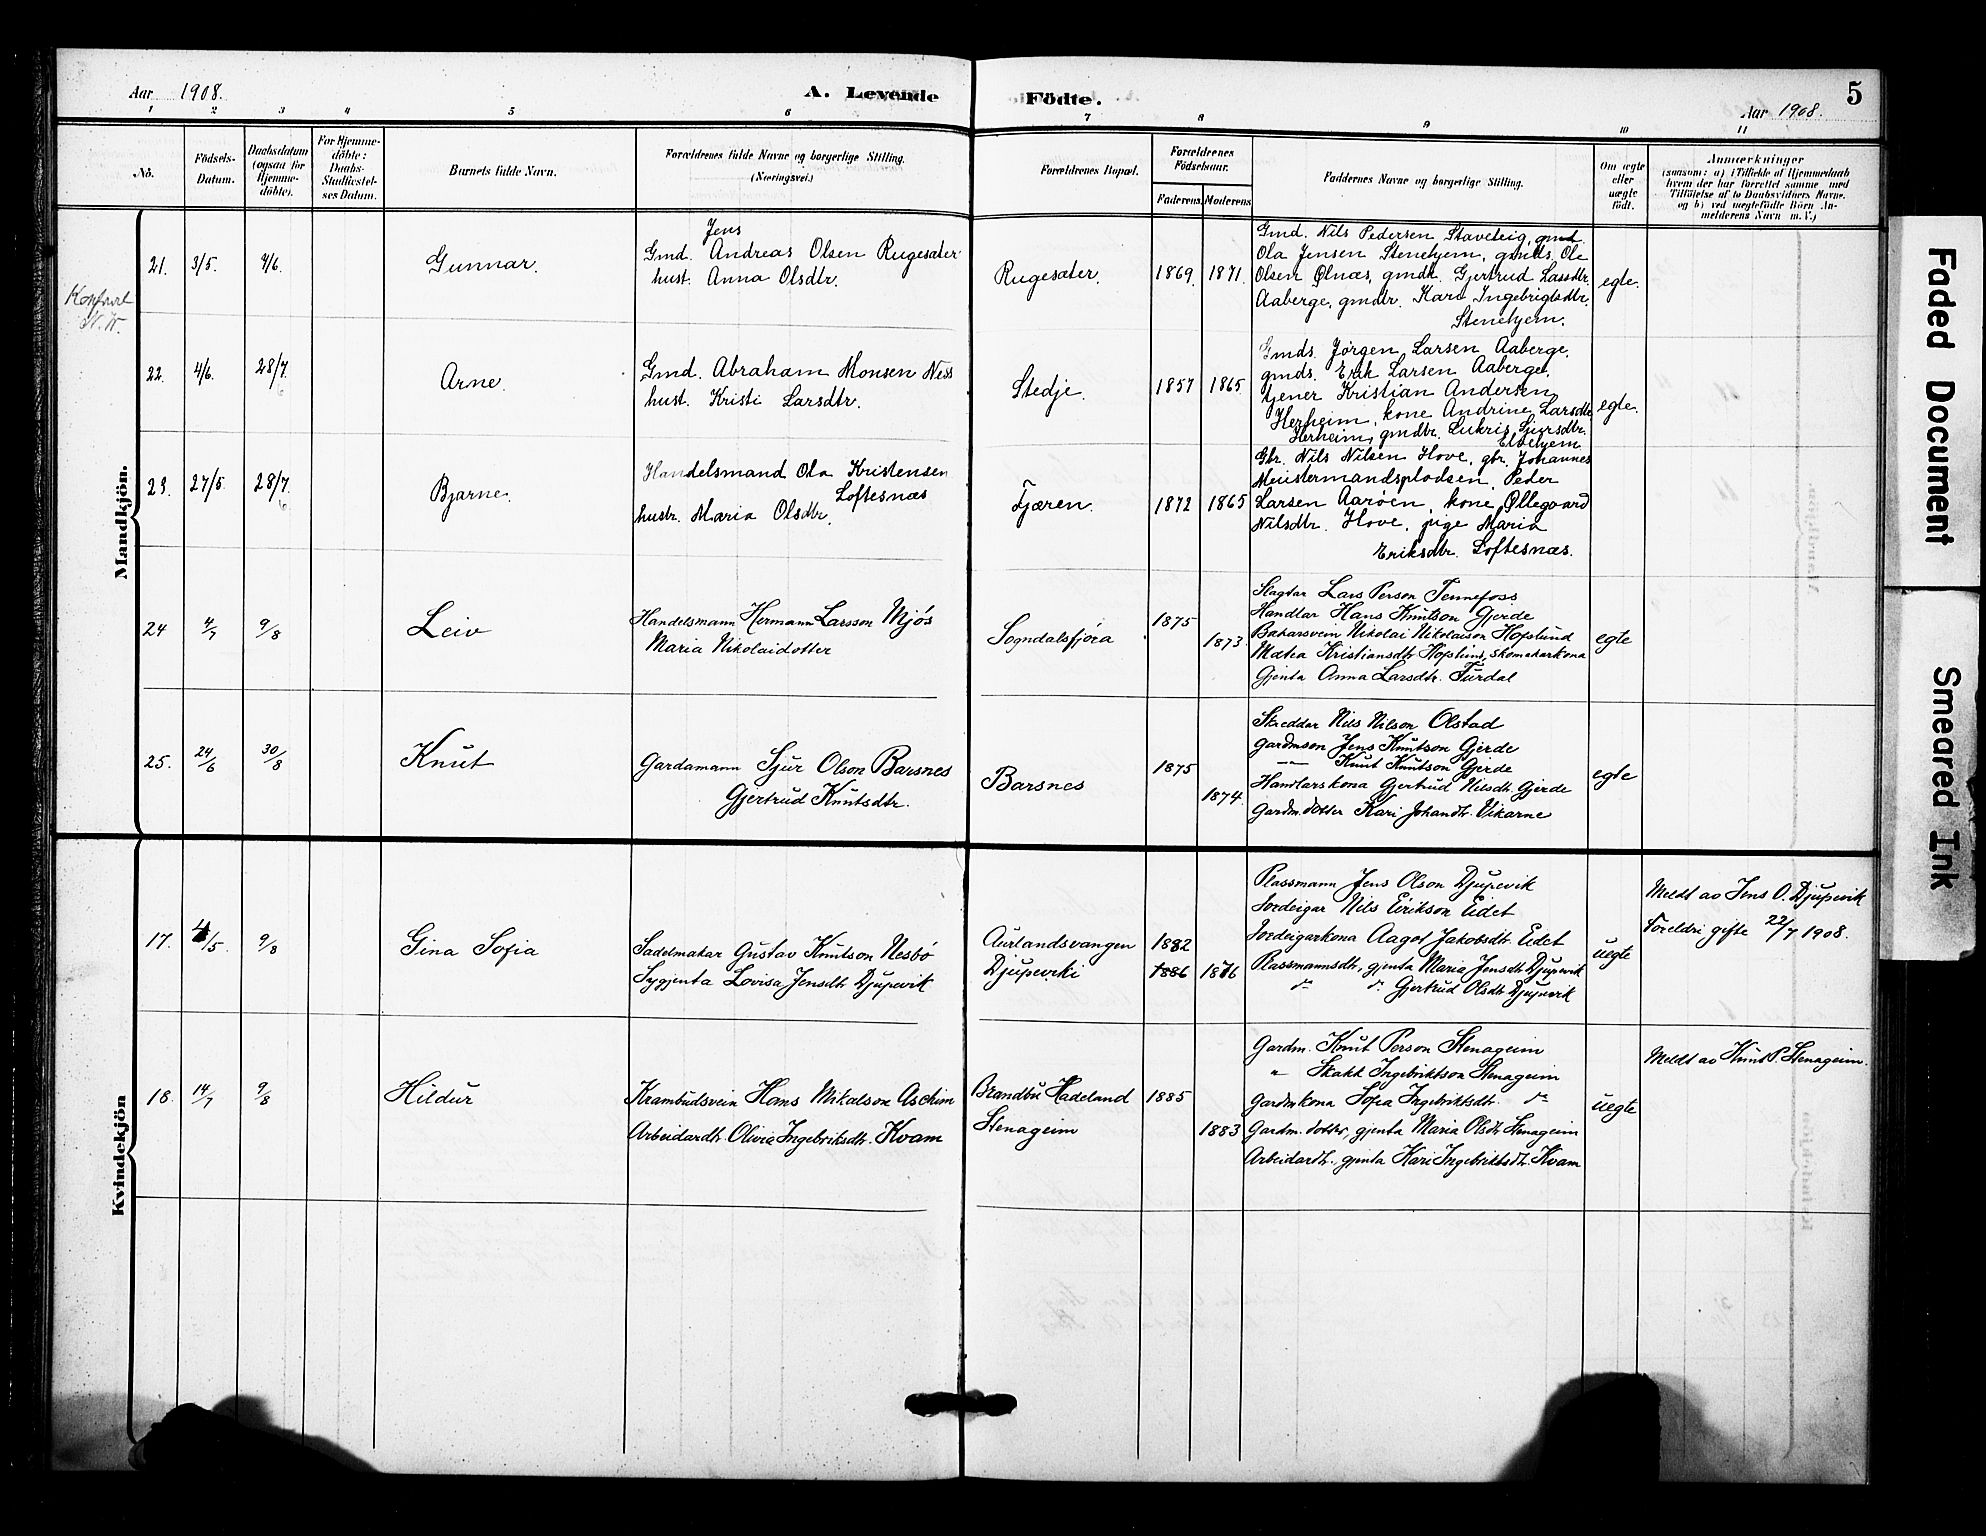 Aar 1908.
A. Levende Födte.
Aar 1908.
5
1 2 3 4 5 6 7 8 9 10 11
No.
Födsels-
Datum.
Daabsdatum
(ogsaa for
Hjemme-
döbte).
For Hjemme-
döbte:
Daabs-
Stadfæstel-
ses Datum.
Barnets fulde Navn.
Forældrenes fulde Navne og borgerlige Stilling.
(Næringsvei.)
Forældrenes Bopæl.
Forældrenes
Födselsaar.
Faderens. Moderens
Faddernes Navne og borgerlige Stilling.
Om ægte
eller
uægte
födt.
Anmærkninger
(saasom: a) i Tilfælde af Hjemmedaab
hvem der har forrettet samme med
Tilföielse af to Daabsvidners Navne.
og b) ved uægtefödte Börn An-
melderens Navn m. V.)
Mandkjön.
21. 3/5. 4/6. Gunnar.
Jens
Gmd. Andreas Olsen Rugesæter
hust. Anna Olsdtr.
Rugesæter. 1869. 1871.
Gmd. Nils Pedersen Stavteig, gmd.
Ola Jensen Stenehjem, gmds. Ole
Olsen Ølnæs, gmdk. Gjertrud Lassdtr.
Aaberge, gmdtr. Kari Ingebrigtsdtr.
Stenehjem.
egte.
22. 4/6. 28/7. Arne.
6
Gmd. Abraham Monsen Ness
hust. Kristi Larsdtr.
Stedje. 1857 1865
Gmds. Jørgen Larsen Aaberge,
gmds. Erik Larsen Aaberge,
tjener Kristian Andersen
Herheim, kone Andrine Larsdtr
Herheim, gmdtr. Lukris Sjursdtr.
egte.
23. 27/5. 28/7. Bjarne.
6
Handelsmand Ola Kristensen
Loftesnæs
hustr. Maria Olsdtr.
Fjæren. 1872 1865
Gbr. Nils Nilsen Hove, gbr. Johannes
Meistermandspladsen, Peder
Larsen Aarøen, kone Øllegaard
Nilsdtr. Hove, pige Maria
Eriksdtr. Loftesnæs.
24 4/7 9/8 Leiv
Handelsmann Hermann Larsson Mjøs
Maria Nikolaidotter
Sogndalsfjøra 1875 1873
Slagtar Lars Person Tennefoss
Handlar Hans Knutson Gjerde
Bakarsvein Nikolai Nikolaison Hofslund
Matha Kristiansdtr Hofslund, skomakarkona
Gjenta Anna Larsdtr. Furdal
egte
25. 24/6 30/8 Knut
Gardamann Sjur Olson Barsnes
Gjertrud Knutsdtr.
Barsnes 1875 1874
Skreddar Nils Nilson Olstad
Gardmson Jens Knutson Gjerde
—"— Knut Knutson Gjerde
Handlarskona Gjertrud Nilsdtr. Gjerde
Gardm. dotter Kari Johandtr. Vikarne
egte
Kvindekjön
17. 4/5. 9/8 Gina Sofia
Sadelmakar Gustav Knutson Nesbø
Sygjenta Lovisa Jensdtr. Djupevik
Aurlandsvangen 1882
Djupevik 1886 1876
Plassmann Jens Olson Djupevik
Jordeigar Nils Eirikson Eidet
Jordeigarkona Aagot Jakobsdtr. Eidet
Plassmannsdtr., gjenta Maria Jensdtr. Djupevik
do do Gjertrud Olsdtr. Djupevik
uegte
Meldt av Jens O. Djupevik
Foreldri gifte 22/7 1908.
18. 14/7 9/8 Hildur
Krambudsvein Hans Mikalson Aschim
Arbeidardtr. Olivia Ingebriktsdtr. Kvam
Brandbu Hadeland 1885
Stenageim 1883
Gardm. Knut Person Stenageim
" Skakt Ingebriktson Stenageim
Gardmkona Sofia Ingebriktsdtr. do
Gardm. dotter, gjenta Maria Olsdtr. Stenageim
Arbeidardtr., gjenta Kari Ingebriktsdtr. Kvam
uegte
Meldt av Knut P. Stenageim.
Faded Document
Smeared Ink